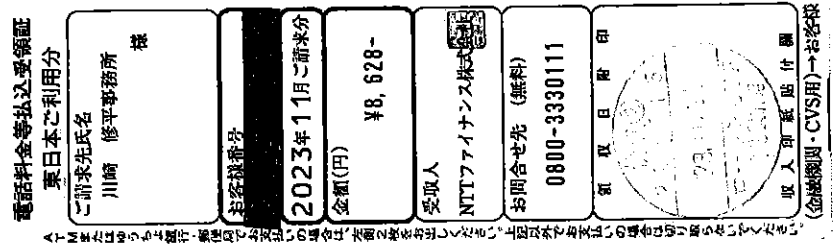 電話料金等払込受領証
東日本ご利用分
ご請求先氏名
川崎 修平事務所
様
お客様番号
2023年11月ご請求分
金額(円)
¥8,628-
受取人
NTTファイナンス株式会社
お問合せ先 (無料)
0800-3330111
領収日附印
収入印紙貼付欄
(金融機関・CVS用)→お客様
ATMまたはゆうちょ銀行・郵便局でお支払いの場合は、左側2枚をお出しください。上記以外でお支払いの場合は切り取らないでください。